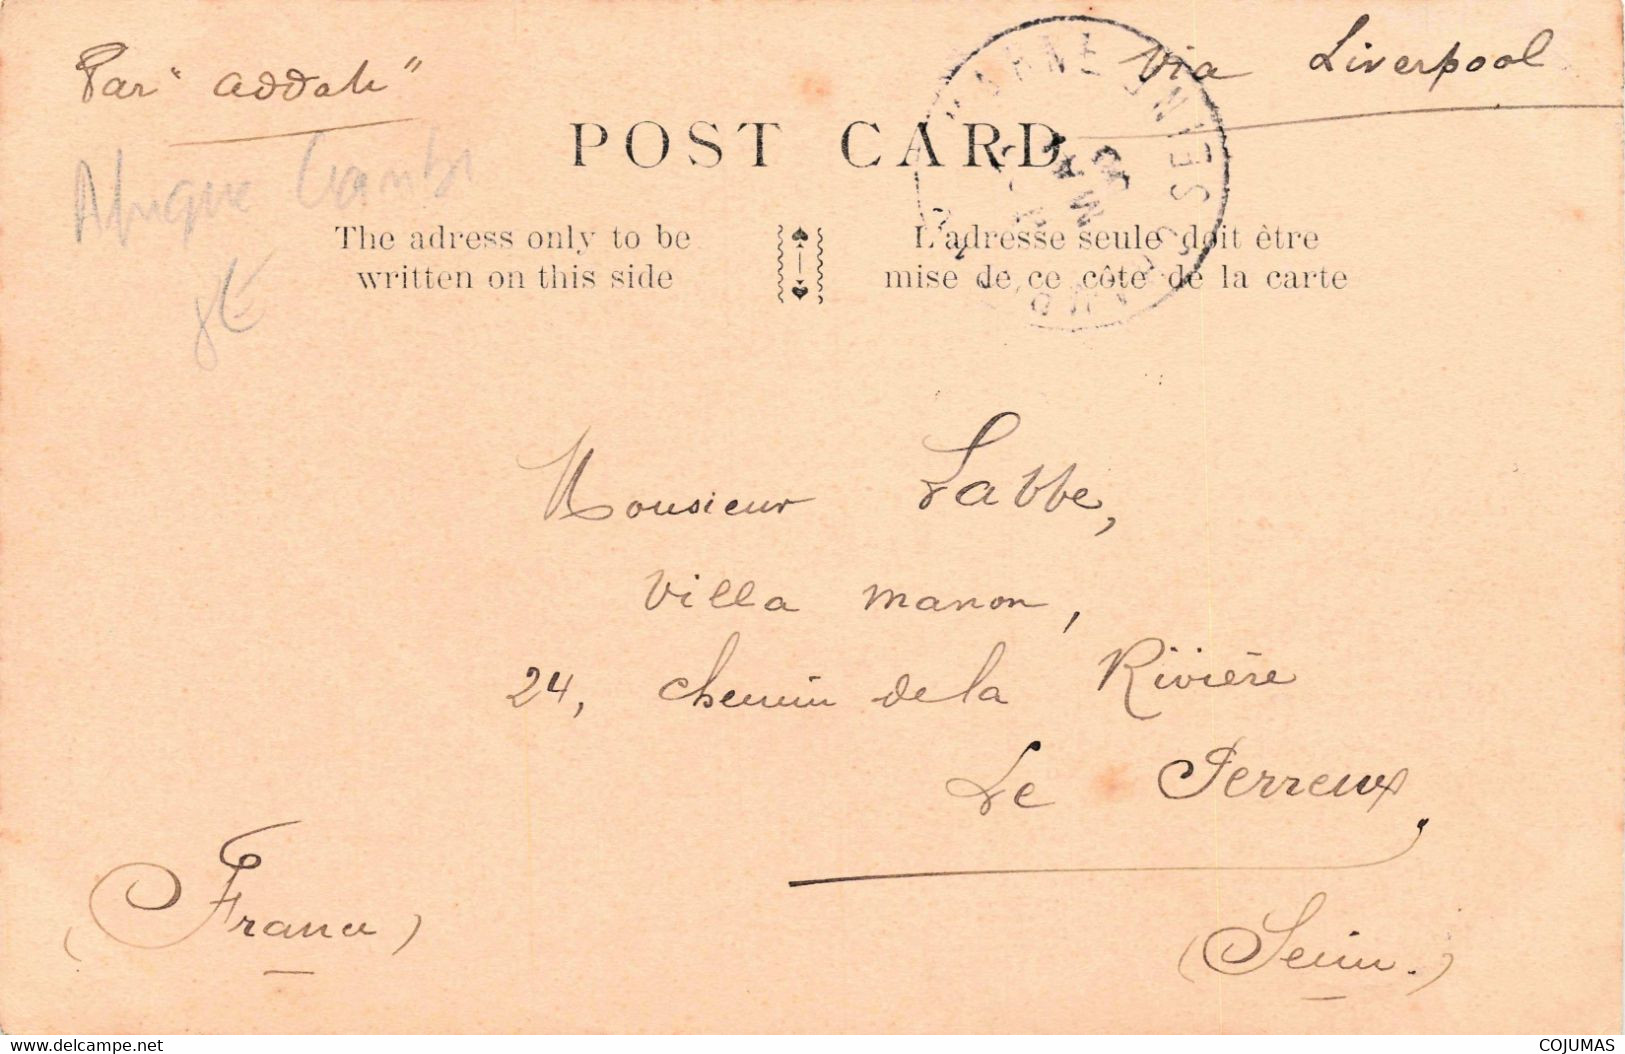 Par "addah"
Via Liverpool
POST CARD
Afrique Gambi
8€
The adress only to be
written on this side
L'adresse seule doit être
mise de ce côté de la carte
MARNE
SEINE
Monsieur Labbe,
Villa Manon,
24, chemin de la Rivière
Le Perreux,
(France)
(Seine.)
www.delcampe.net
COJUMAS